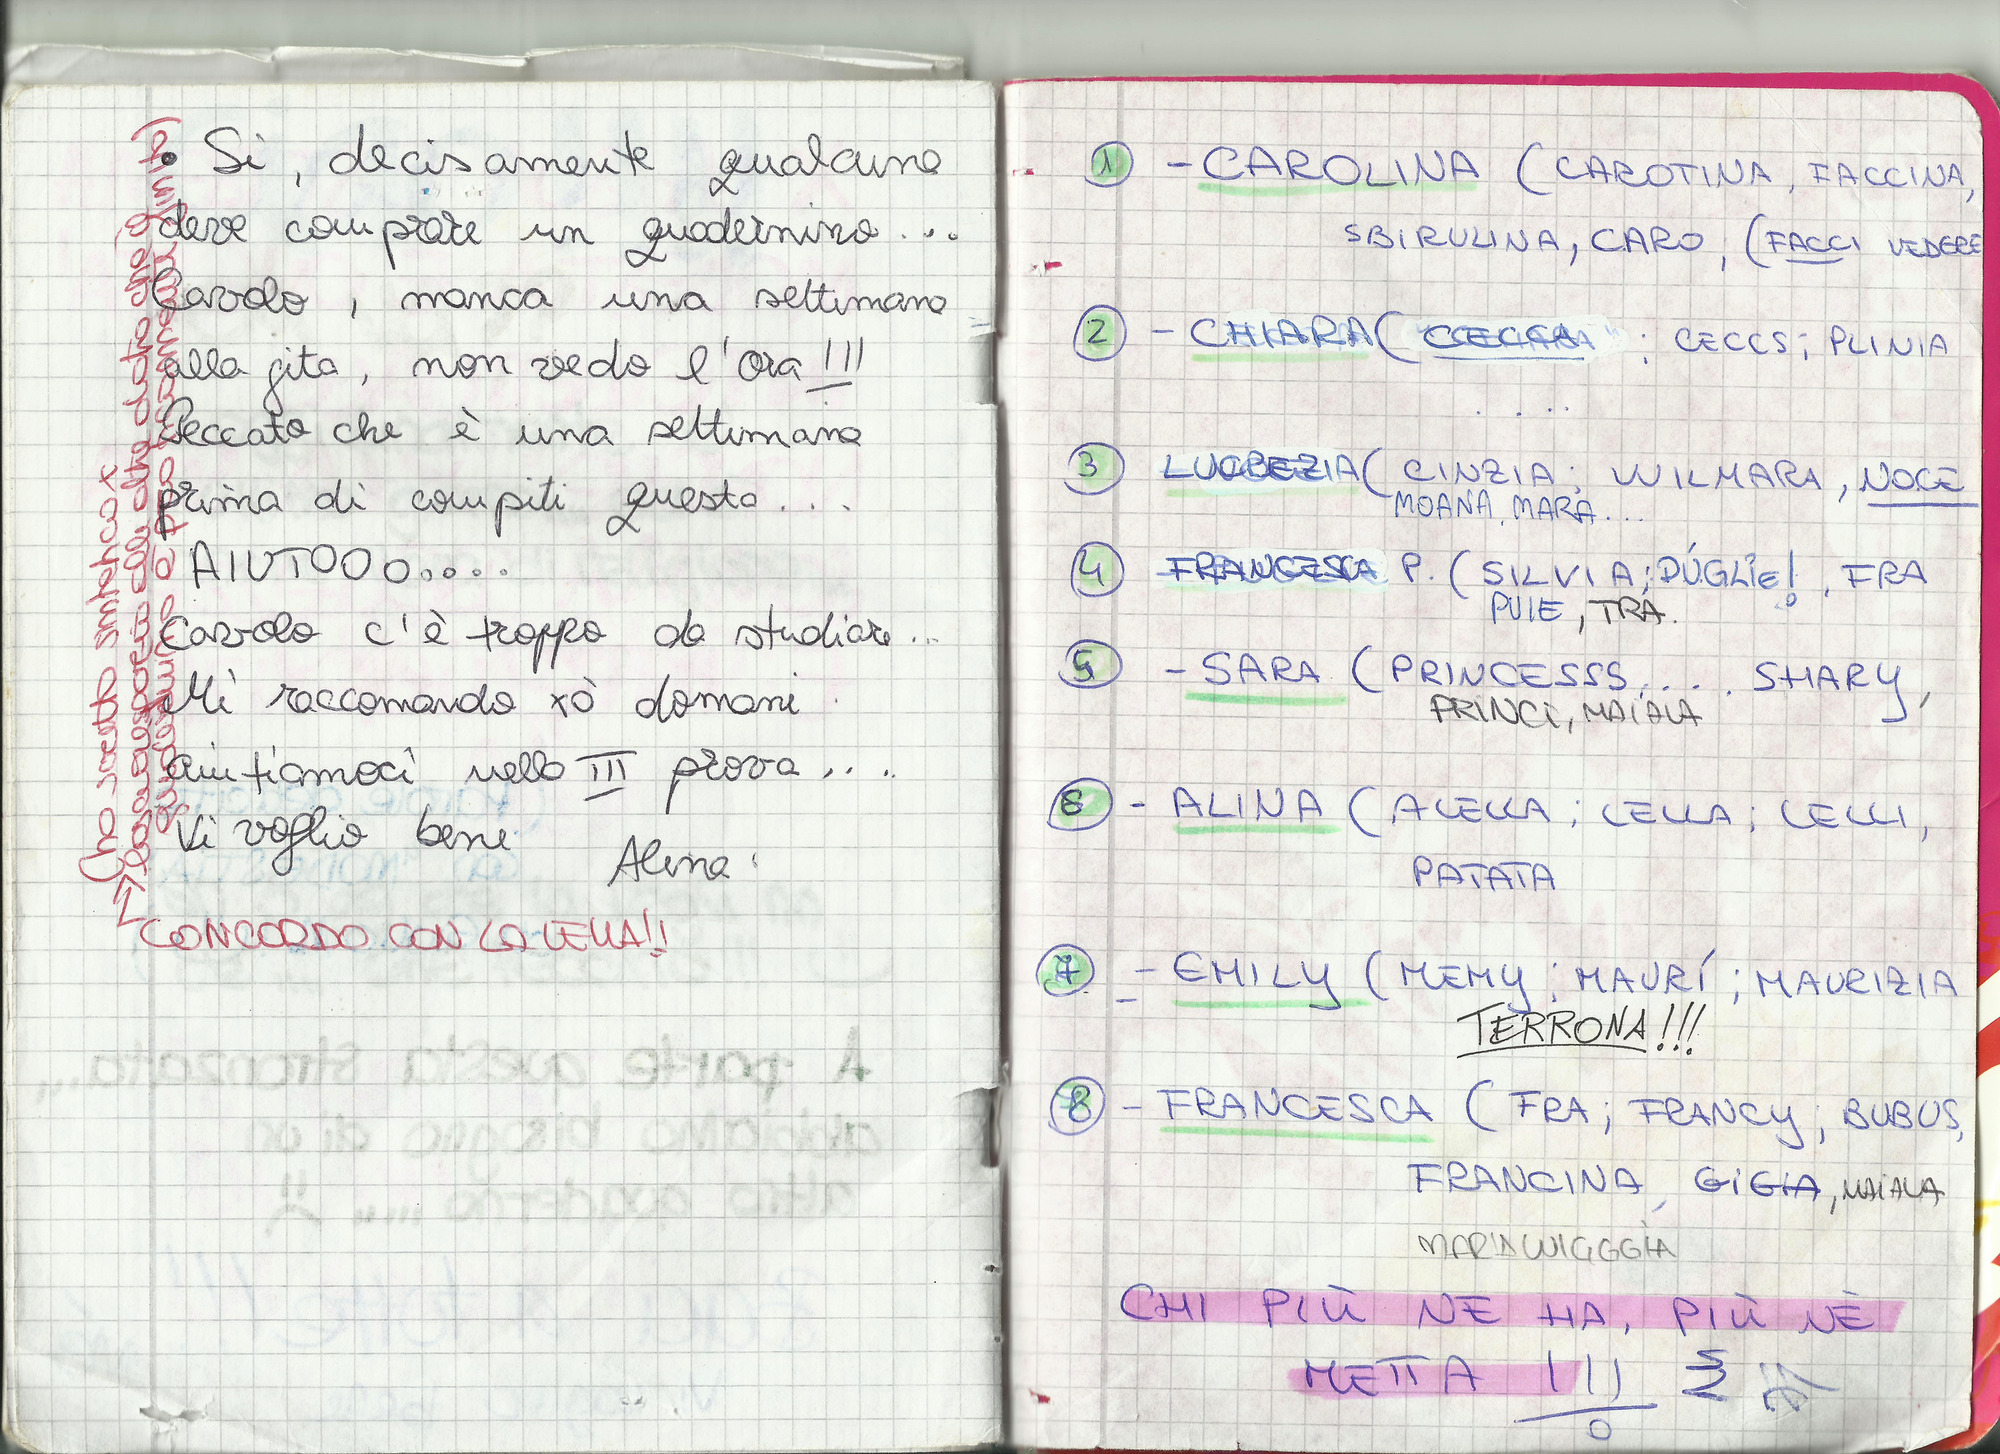 • Si, decisamente qualcuno
deve comprare un quadernino...
Cavolo, manca una settimana
alla gita, non vedo l'ora!!!
Peccato che è una settimana
prima di compiti questa...
AIUTOOO....
Cavolo c'è troppo da studiare...
Mi raccomando xò domani
aiutiamoci nella III prova....
Vi voglio bene
Alina
CONCORDO CON LA LELLA!!
(ho scritto
1 - CAROLINA (CAROTINA, FACCINA,
SBIRULINA, CARO, (FACCI VEDERE
2 - CHIARA ("CECCA" ; CECCS; PLINIA
....
3 LUCREZIA (CINZIA; WILMARA, NOCE
MOANA, MARA...
4 FRANCESCA P. (SILVIA; PÚGLIE!, FRA
PUIE, TRA.
5 - SARA (PRINCESSS.... SHARY,
PRINCI, MAIALA
6 - ALINA (ALELLA; LELLA; LELLI,
PATATA
7 - EMILY (MEMY; MAURÍ; MAURIZIA
TERRONA!!!
8 - FRANCESCA (FRA; FRANCY; BUBUS,
FRANCINA, GIGIA, MAIALA
CHI PIÙ NE HA, PIÙ NÈ
METTA !!!